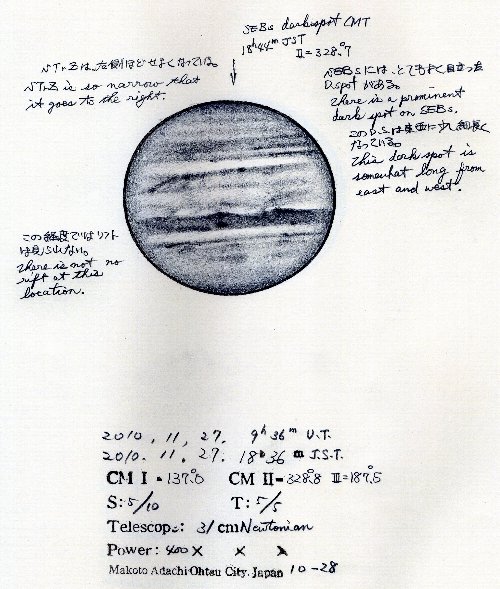 SEBs dark spot CMT
18h44m JST
II=328.°7
NTrZは、左側ほどせまくなっている。
NTrZ is so narrow that
it goes to the right.
SEBsには、とてもよく目立つた
D.spotがある。
There is a prominent
dark spot on SEBs.
このD.S.は東西に少し細長く
なっている。
This dark spot is
somewhat long from
east and west.
この経度ではリフト
は見られない。
There is not no
rift at this
location.
2010. 11. 27. 9h 36m U.T.
2010. 11. 27. 18h 36m J.S.T.
CM I = 137.°0 CM II = 328.°8 III=187.°5
S: 5/10 T: 5/5
Telescope: 31 cm Newtonian
Power: 400 × × ×
Makoto Adachi Ohtsu City. Japan 10-28